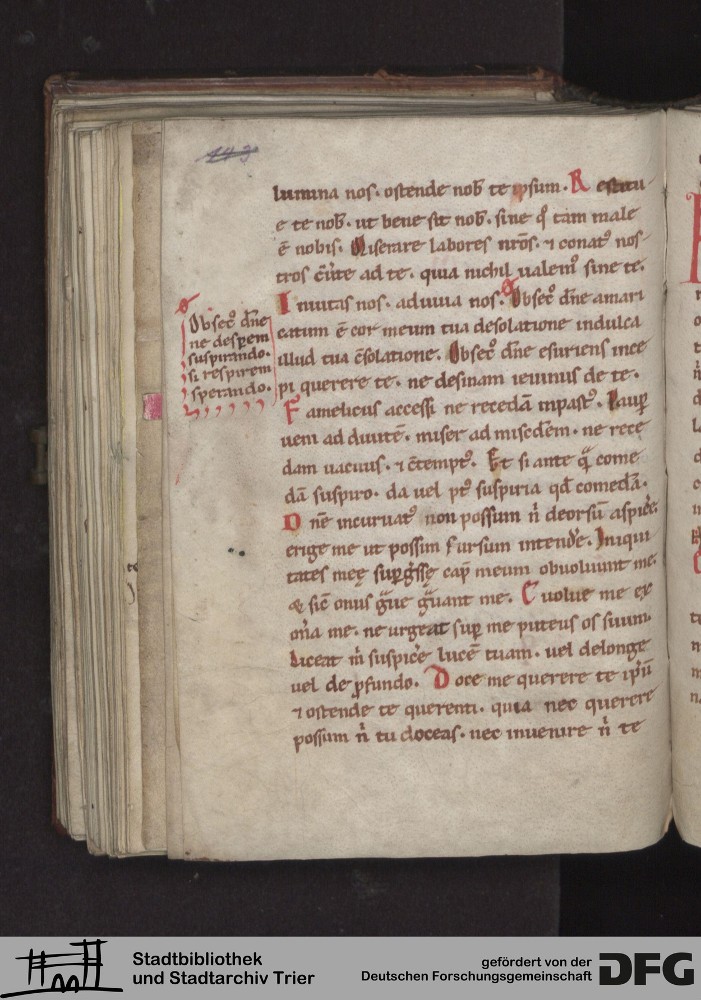 143
lumina nos. ostende nob̄ te ipsum. Restitu
e te nob̄. ut bene sit nob̄. sine qͦ tam male
ē nobis. Miserare labores nr̄os. ⁊ conatꝰ nos
tros c̄ūte ad te. quia nichil ualemꝰ sine te.
Inuitas nos. adiuua nos. Obsecͦ dn̄e amari
catum ē cor meum tua desolatione indulca
illud tua c̄solatione. Obsecͦ dn̄e esuriens ince
pi querere te. ne desinam ieiunus de te.
Famelicus accessi. ne recedā inpastꝰ. Paup̄
ueni ad diuitē. miser ad misc̄dem. ne rece
dam uacuus. ⁊ c̄temptꝰ. Et si ante qͣ come
dā suspiro. da uel pꝰ suspiria qd̄ comedā.
Dn̄e incuruatꝰ non possum n̄ deorsū aspic̄e.
erige me ut possim sursum intend̄e. Iniqui
tates meę sup̄ḡssę cap̄ meum obuoluunt me.
& sic̄ onus gͣue gͣuant me. Euolue me ex
on̄a me. ne urgeat sup̄ me puteus os suum.
Liceat m̄ suspic̄e lucē tuam. uel delonge
uel de ꝓfundo. Doce me querere te
⁊ ostende te querenti. quia nec querere
possum n̄ tu doceas. nec inuenire n̄ te
Obsecͦ dn̄e
ne desꝑem
suspirando.
si respirem
sperando.
Stadtbibliothek
und Stadtarchiv Trier
gefördert von der
Deutschen Forschungsgemeinschaft
DFG